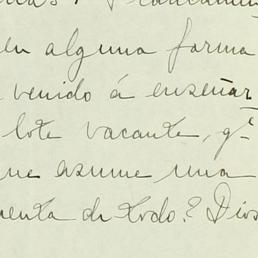 en alguna forma
venido á enseñar
lote vacante, qe
ne asume una
uenta de todo? Dios